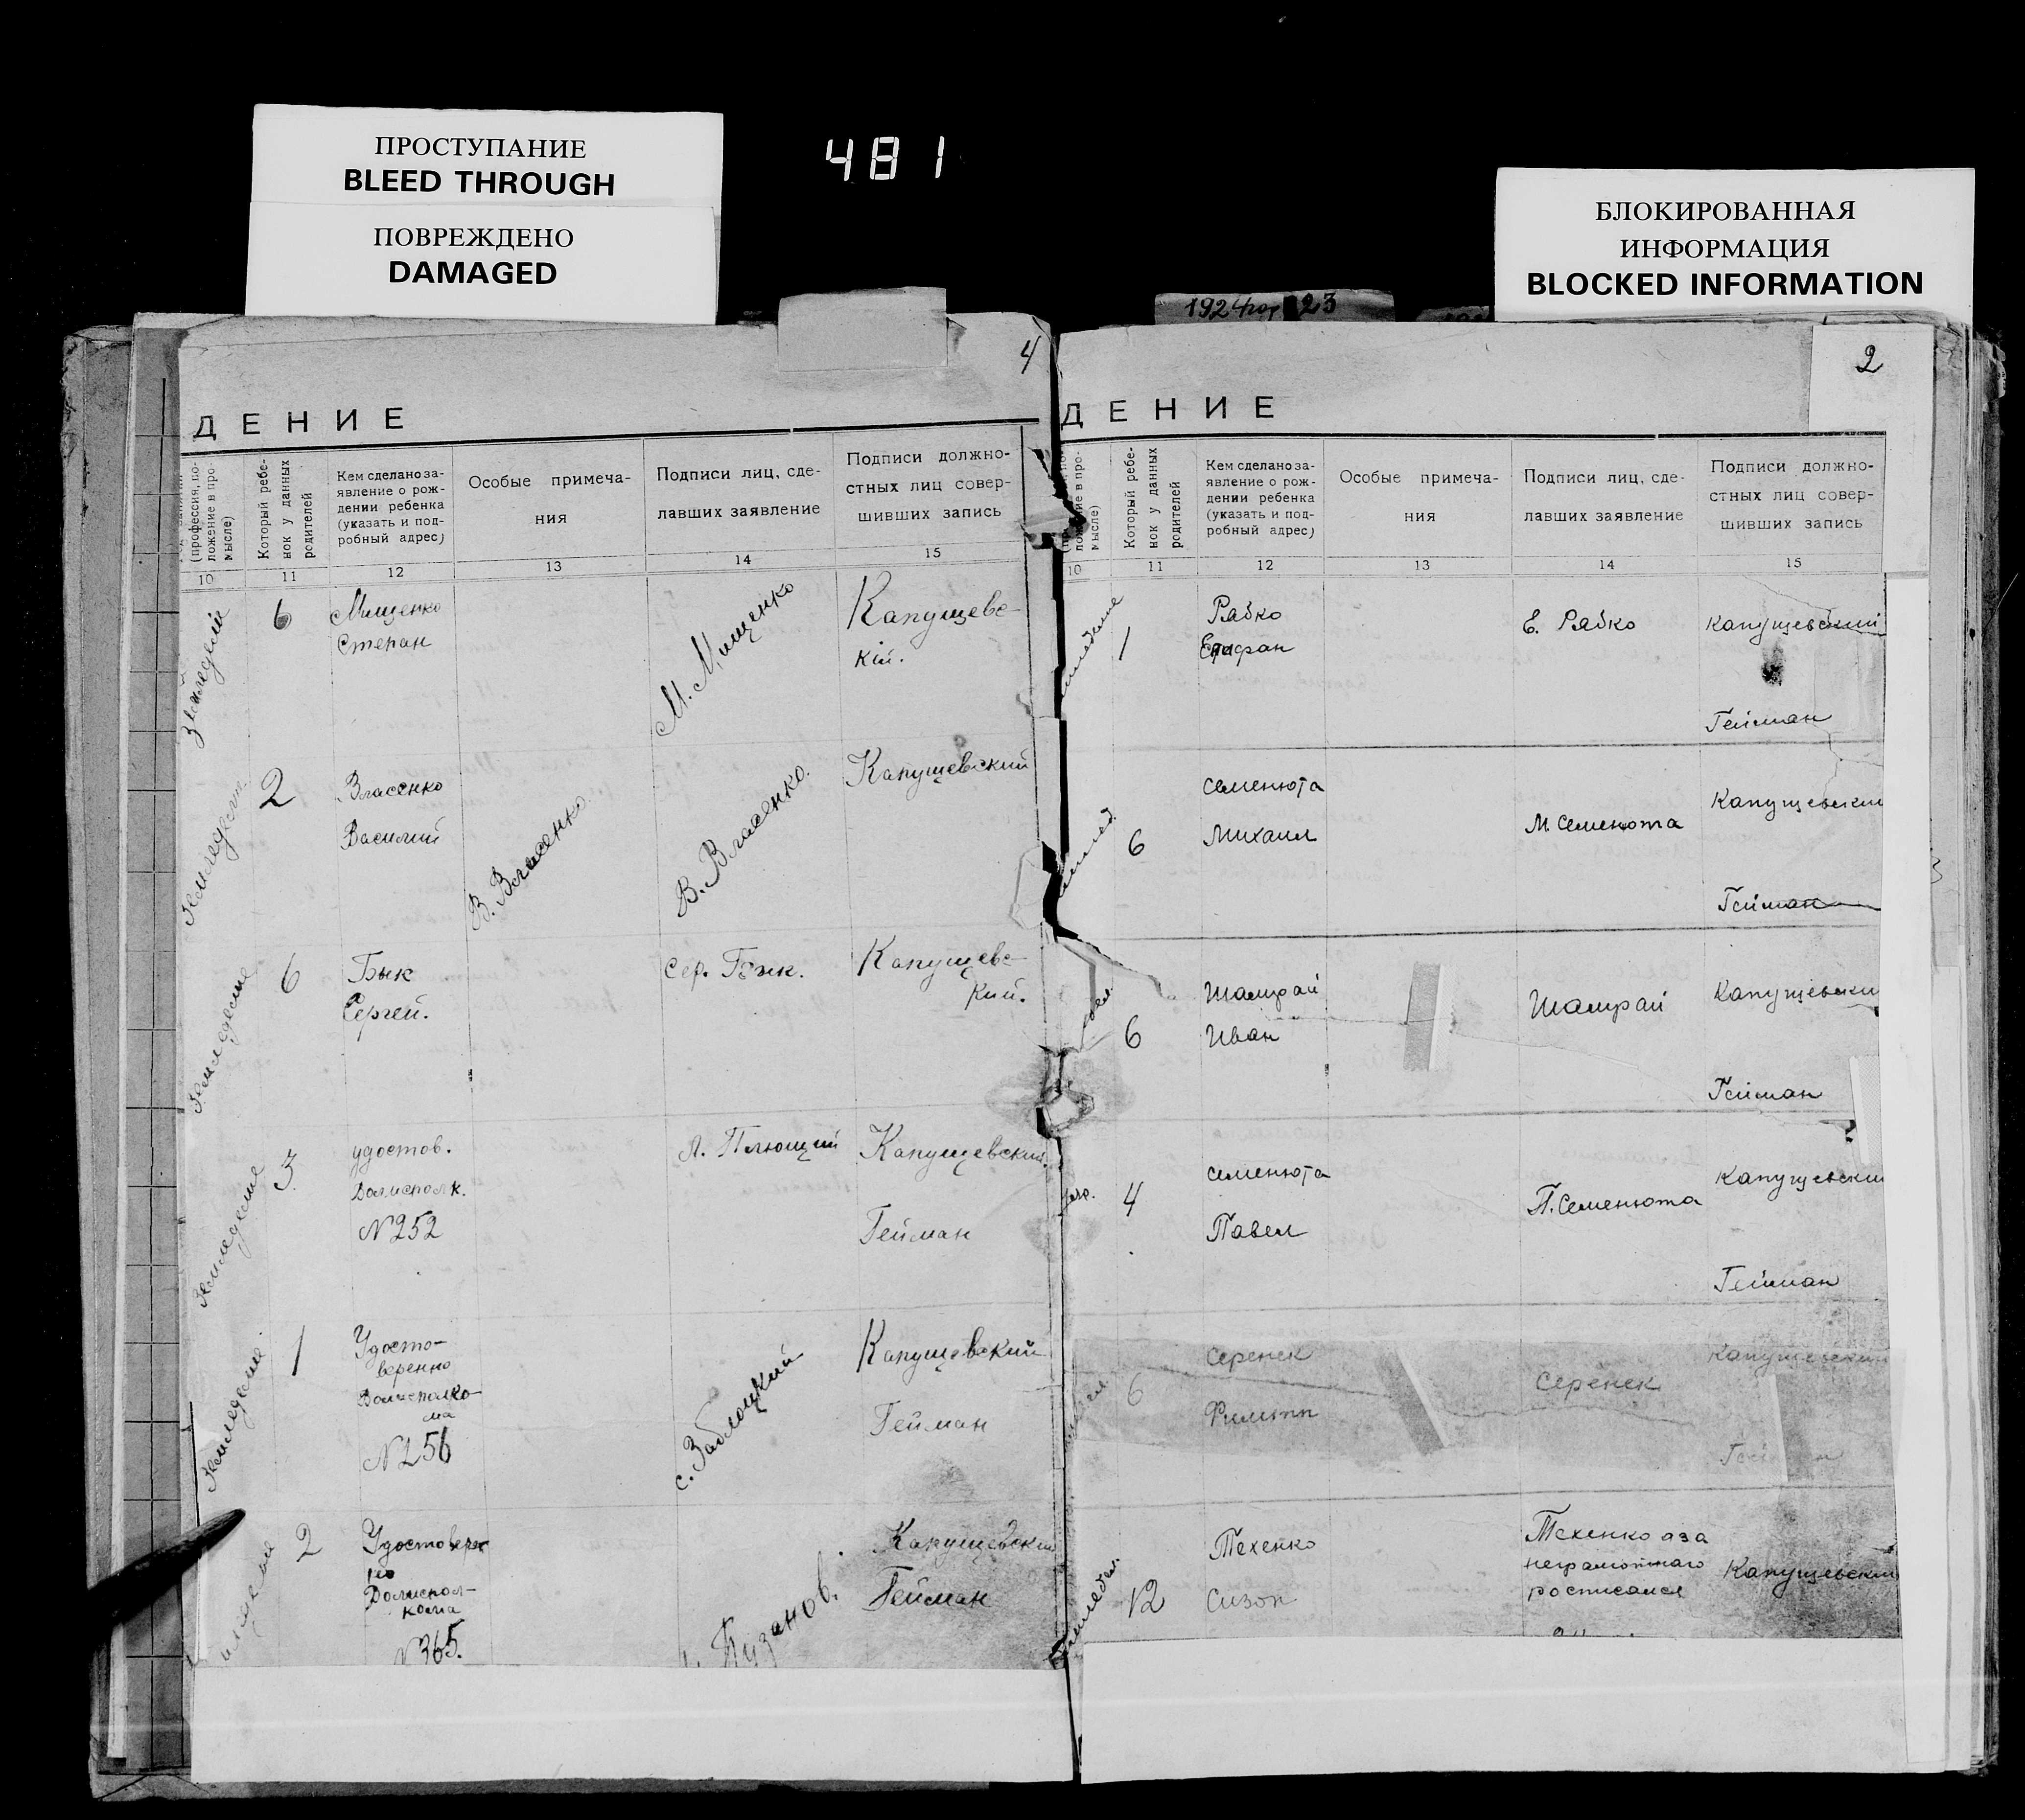 ПРОСТУПАНИЕ
BLEED THROUGH
ПОВРЕЖДЕНО
DAMAGED
481
БЛОКИРОВАННАЯ
ИНФОРМАЦИЯ
BLOCKED INFORMATION
1924 год 23
4
ДЕНИЕ
(профессия, по-
ложение в про-
мысле)
Который ребе-
нок у данных
родителей
Кем сделано за-
явление о рож-
дении ребенка
(указать и под-
робный адрес)
Особые примеча-
ния
Подписи лиц, сде-
лавших заявление
Подписи должно-
стных лиц совер-
шивших запись
10 11 12 13 14 15
6
Мищенко
Степан
М. Мищенко
Капущевс-
кій.
2
Власенко
Василий
В. Власенко
В. Власенко.
Капущевский
Земледелие
6
Бык
Сергей.
Сер. Бык.
Капущевс-
кий.
Земледелие
3
удостов.
Волисполк.
N 252
А. Плющий
Капущевский
Гейман
Земледелие
1
Удосто-
веренно
Волисполко-
ма
N 256
С. Заблоцкий
Капущевский
Гейман
2
Волиспол-
кома
N 365.
Пузанов.
Капущевский
Гейман
2
ДЕНИЕ
мысле)
Который ребе-
нок у данных
родителей
Кем сделано за-
явление о рож-
дении ребенка
(указать и под-
робный адрес)
Особые примеча-
ния
Подписи лиц, сде-
лавших заявление
Подписи должно-
стных лиц совер-
шивших запись
10 11 12 13 14 15
1
Рабко
Епифан
Е. Рабко
Капущевский
Гейман
6
Семенюта
Михаил
М. Семенюта
Капущевский
Гейман
6
Шамрай
Иван
Шамрай
Капущевский
Гейман
4
Семенюта
Павел
П. Семенюта
Капущевский
Гейман
6
Серенек
Филипп
Серенек
Капущевский
Гейман
12
Техенко
Сизон
Техенко аза
неграмотнаго
росписался
Капущевский